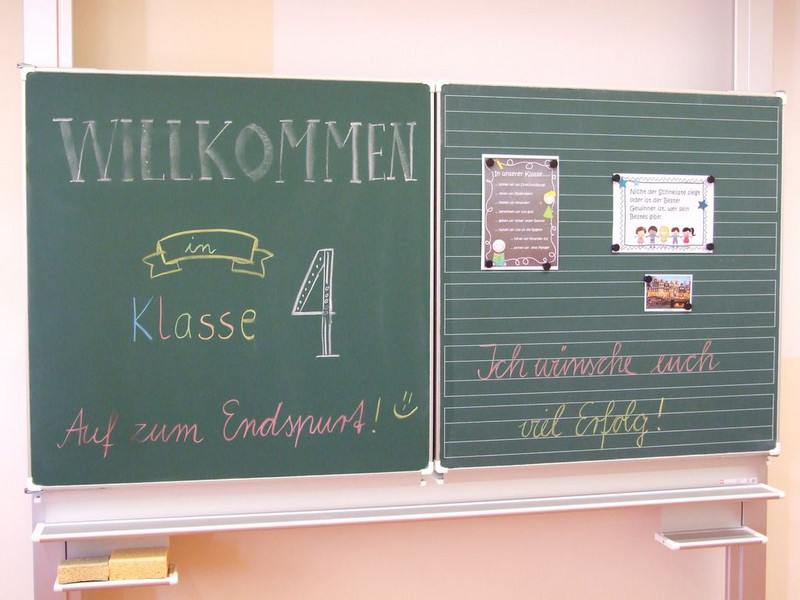 WILLKOMMEN
in
Klasse 4
Auf zum Endspurt!
In unserer Klasse...
Nicht der Schnellste siegt
oder ist der Beste!
Gewinner ist, wer sein
Bestes gibt!
Ich wünsche euch
viel Erfolg!